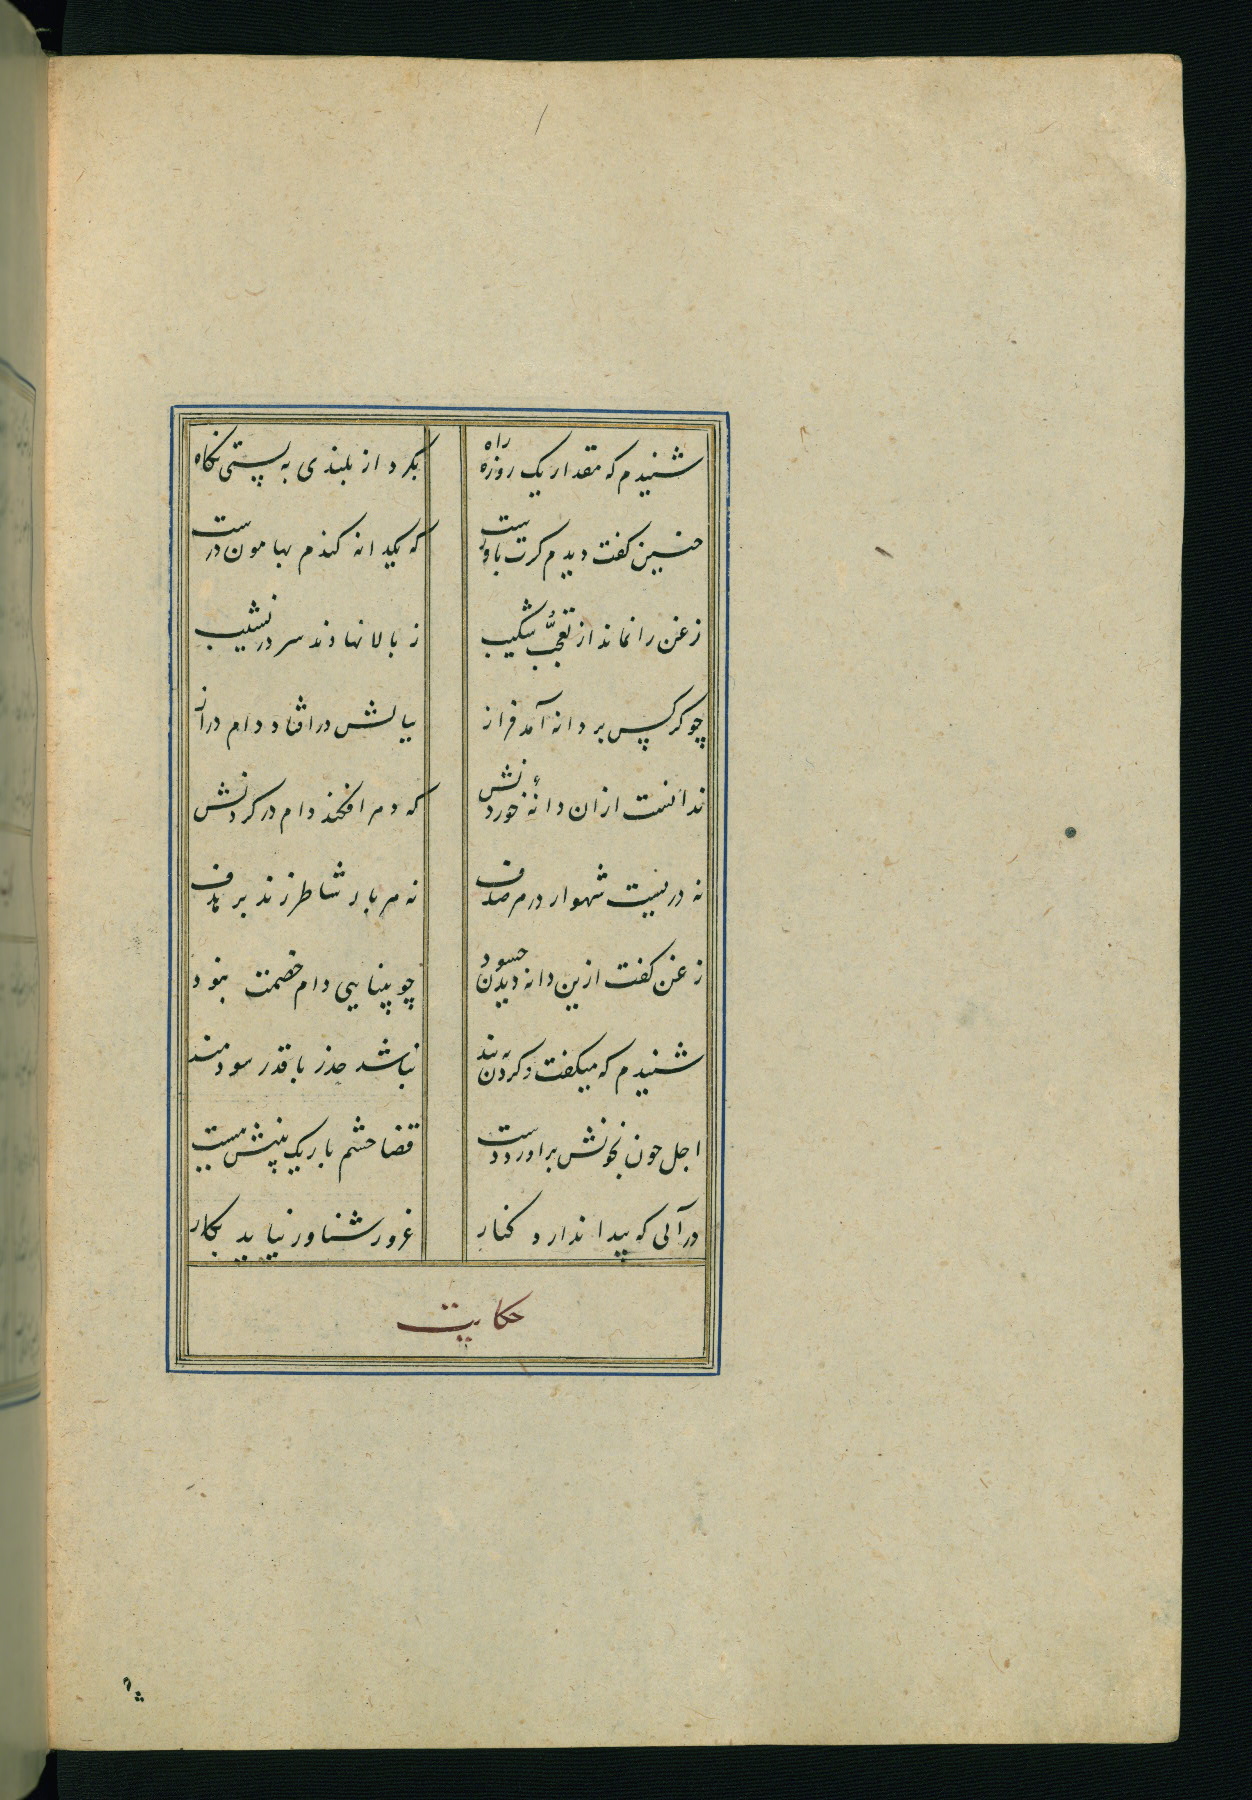 شنیدم که مقدار یک روزه راه بکرد از بلندی به پستی نکاه
چنین کفت دیدم کرت باورست که یکدانه کندم بهامون درست
زغن را نماند از تعجّب شکیب ز بالا نهادند سر در نشیب
چو کرکس بر دانه آمد فراز بپایش در افتاد دام دراز
ندانست ازان دانهٔ خوردنش که دهر افکند دام در کردنش
نه در نیست شهوار در هر صدف نه هر بار شاطر زند بر هدف
زغن کفت ازین دانه دیدن چسود چو بینایی دام خصمت نبود
شنیدم که میکفت و کردن به بند نباشد حذر با قدر سودمند
اجل چون بخونش برآورد دست قضا چشم باریک بینش ببست
در آبی که پیدا ندارد کنار غرور شناور نیاید بکار
حکایت